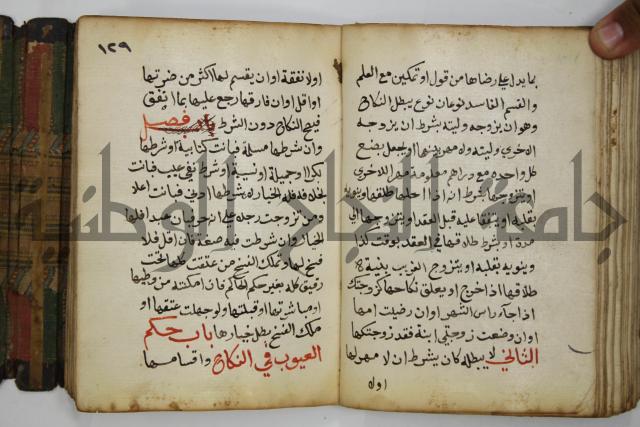 بما يدل على رضاها من قول او تمكين مع العلم
والقسم الفاسد نوعان نوع يبطل النكاح
وهو ان يزوجه وليته بشرط ان يزوجه
الاخرى وليته ولا مهر بينهما او يجعل بضع
كل واحدة مع دراهم معلومة مهر للاخرى
او يتزوجها بشرط انه اذا احلها طلقها او ينويه
بقلبه او يتفقا عليه قبل العقد او يتزوجها الى
مدة او بشرط طلاقها في العقد بوقت كذا
وينويه بقلبه او يتزوج الغريب بنية
طلاقها اذا خرج او يعلق نكاحها كزوجتك
اذا جاء راس الشهر او ان رضيت امها
او ان وضعت زوجتي ابنة فقد زوجتكها
الثاني لا يبطله كان يشرط ان لا مهر لها
اولا
١٢٩
اولا نفقة او ان يقسم لها اكثر من ضرتها
او اقل او ان فارقها رجع عليها بما انفق
فيصح النكاح دون الشرط فصل
وان شرطها مسلمة فبانت كتابية او شرطها
بكرا او جميلة او نسيبة او شرط نفي عيب فبانت
بخلافه فله الخيار لا ان شرطها ادنى فبانت اعلا
ومن تزوجت رجلا على انه حر فبان عبدا فلها
الخيار وان شرطت فيه صفة فبان اقل فلا
فسخ لها وتملك الفسخ من عتقت كلها تحت
رقيق كله بغير حكم الحاكم فان امكنته من وطيها
او مباشرتها او قبلتها ولو جهلت عتقها او
ملك الفسخ بطل خيارها باب حكم
العيوب في النكاح واقسامها
جامعة النجاح الوطنية